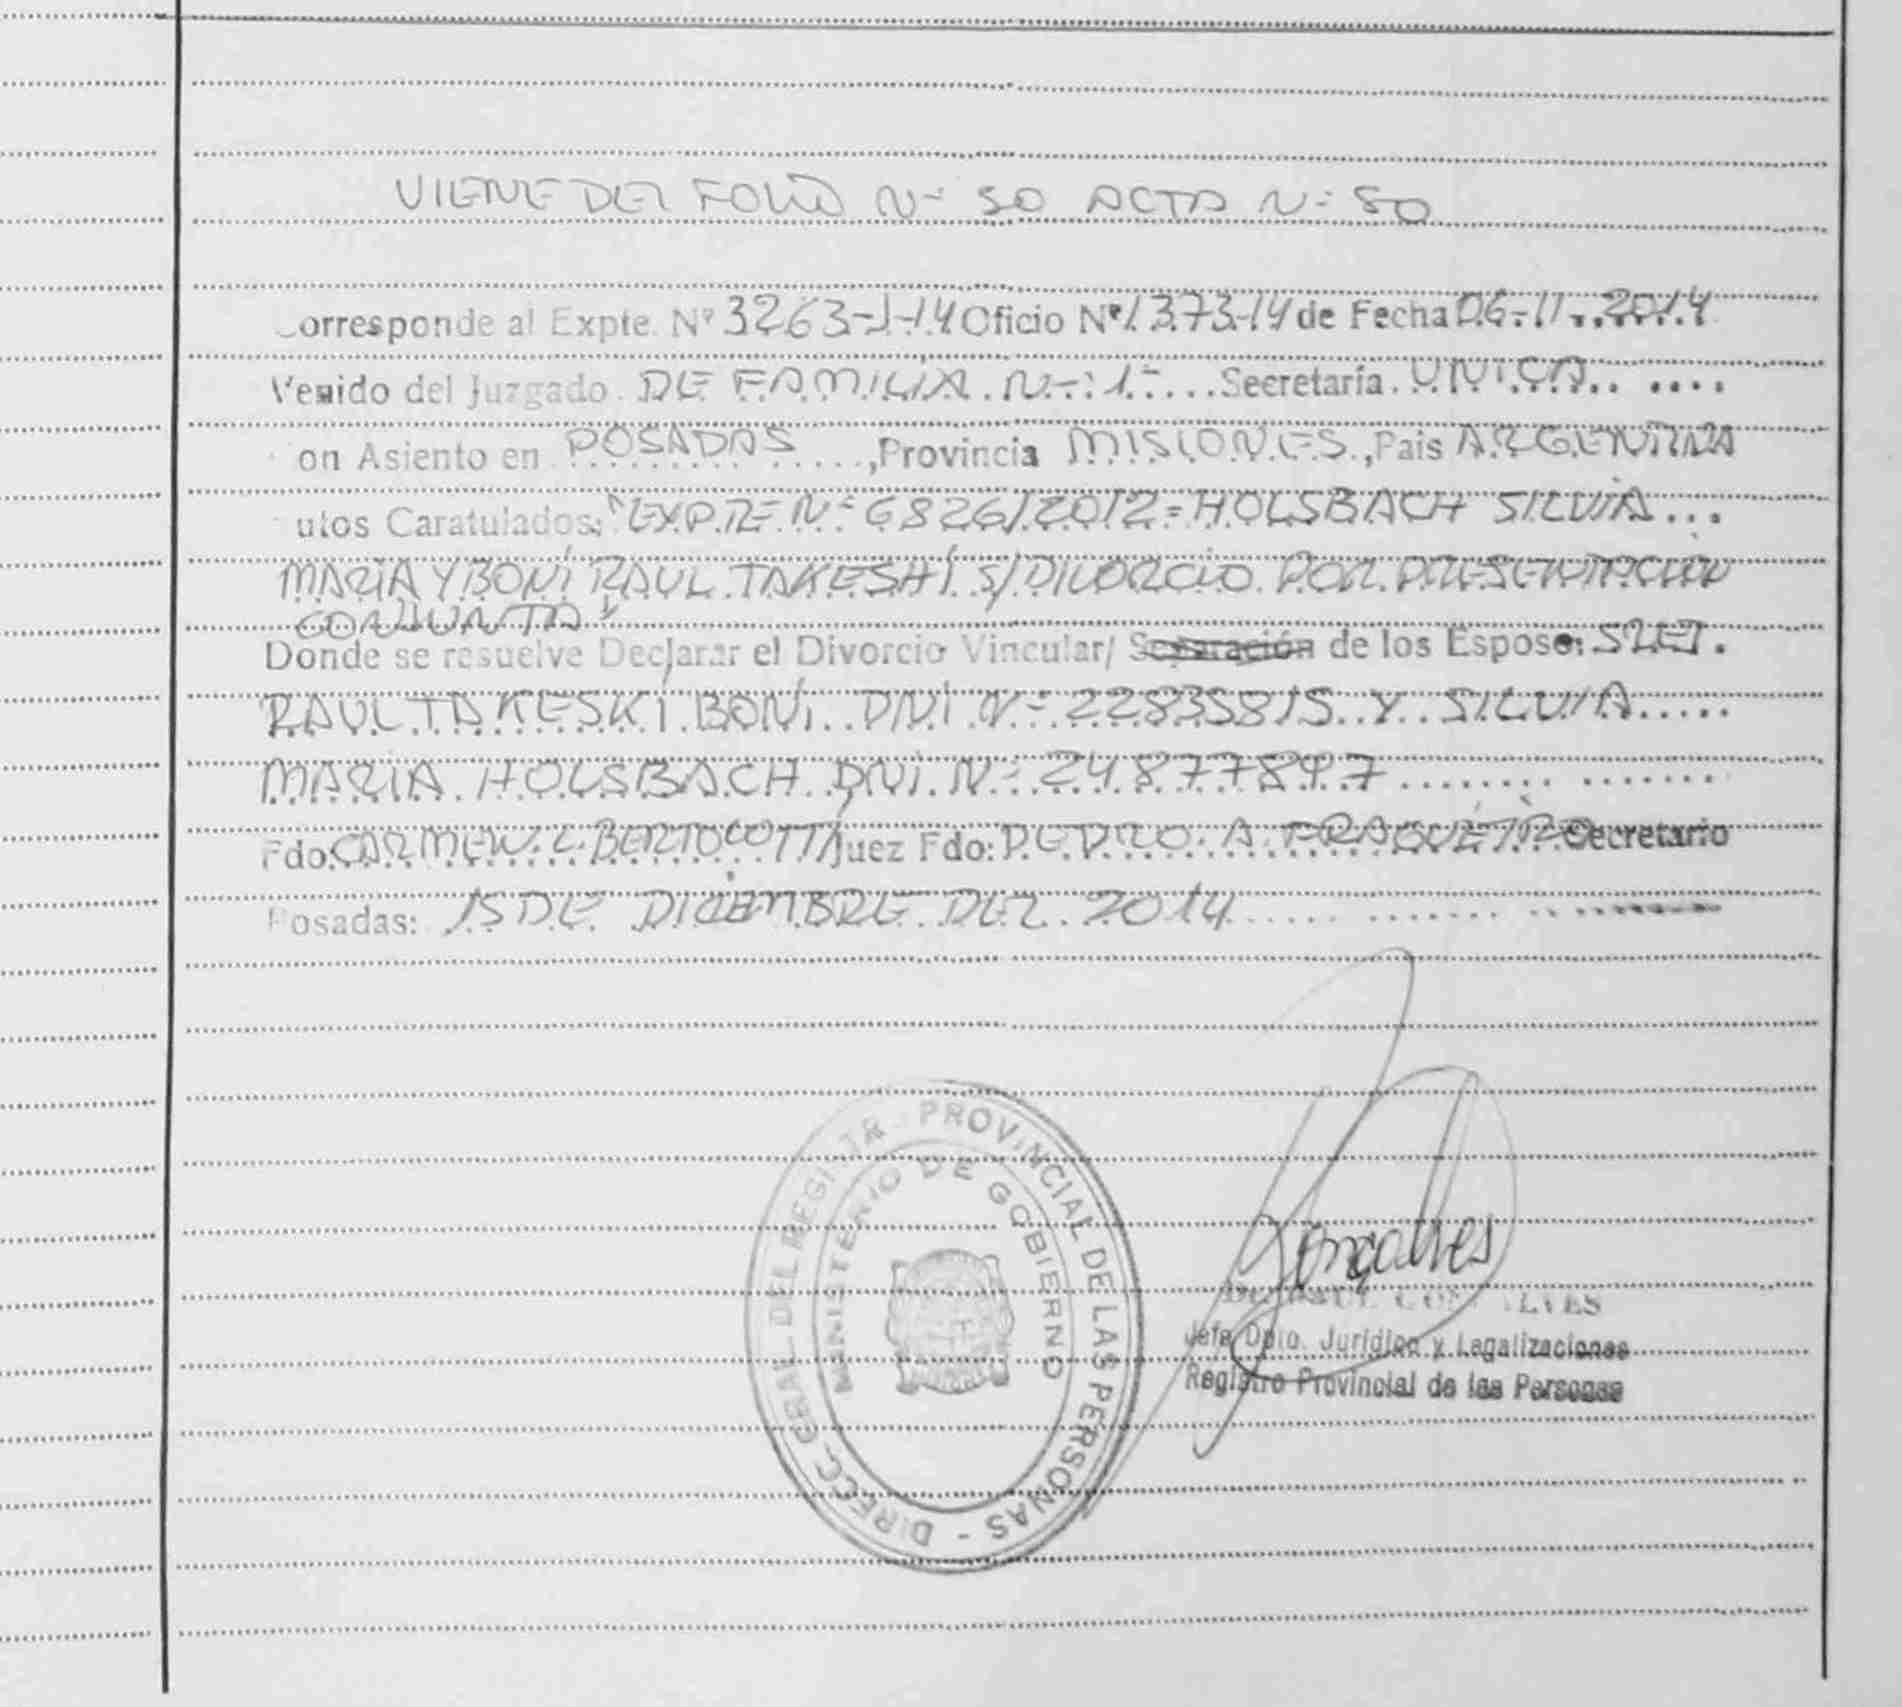 VIENE DEL FOLIO N= 50 ACTA N= 50
orresponde al Expte. Nº 3263-J-14 Oficio Nº 1373-14 de Fecha 06-11-2014
Venido del Juzgado DE FAMILIA N=:1= Secretaría UNICA
on Asiento en POSADAS, Provincia MISIONES, Pais ARGENTINA
utos Caratulados: "EXPTE N= 6826/2012= HOLSBACH SILVIA
MARIA Y BONI RAUL TAKESHI S/DIVORCIO POR PRESENTACION
CONJUNTA"
Donde se resuelve Declarar el Divorcio Vincular/ Separación de los Esposo:
RAUL TAKESKI BONI DNI N= 22835815 Y SILVIA
MARIA HOLSBACH DNI N= 24877897
Fdo: CARMEN C. BERTOCOTTI Juez Fdo: PEDRO A. Secretario
Posadas: 15 DE DICIEMBRE DEL 2014
DIRECC. GRAL DEL REGISTR PROVINCIAL DE LAS PERSONAS -
MINISTERIO DE GOBIERNO
Gonçalves
Jefe Dpto. Jurídico y Legalizaciones
Registro Provincial de las Personas